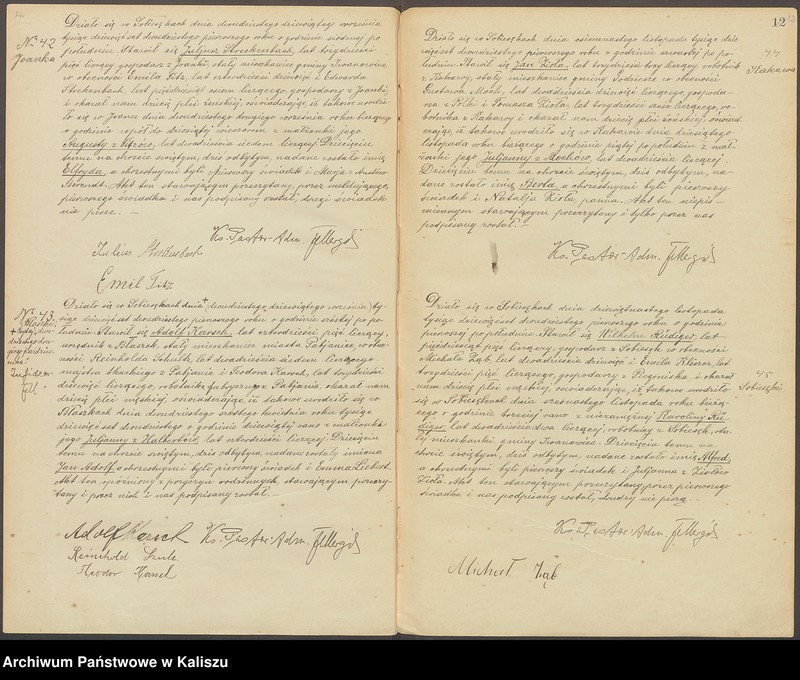 No 42
Joanka
Działo się w Sobieskach dnia dwudziestego dziewiątego września
tysiąc dziewięćset dwudziestego pierwszego roku o godzinie siódmej po
południu. Stawił się Juljusz Strekenbach, lat trzydzieści
pięć liczący, gospodarz z Joanki, stały mieszkaniec gminy Iwanowice
w obecności Emila lat czterdzieści dziewięć i Edwarda
lat pięćdziesiąt osiem liczącego, gospodarzy z Joanki
i okazał nam dziecię płci żeńskiej, oświadczając, iż takowe urodzi-
ło się w Joance dnia dwudziestego drugiego września roku bieżącego
o godzinie wpół do dziesiątej wieczorem z małżonki jego
Augusty z lat dwadzieścia siedem liczącej. Dziecięciu
temu na chrzcie świętym, dziś odbytym, nadane zostało imię
a chrzestnymi byli pierwszy świadek i Marja i
Akt ten stawającym przeczytany, przez meldującego,
pierwszego świadka i nas podpisany został, drugi świadek
nie pisze. —
Ks. Pastor-Adm.
Julius Strekenbach
Emil
No 43
Działo się w Sobieskach dnia + dwudziestego dziewiątego września ty-
siąc dziewięćset dwudziestego pierwszego roku o godzinie szóstej po po-
łudniu. Stawił się Adolf Karsch, lat czterdzieści pięć liczący,
urzędnik z Błaszek, stały mieszkaniec miasta Pabjanic, w obec-
ności Reinholda lat dwadzieścia siedem liczącego
majstra tkackiego z Pabjanic i Teodora lat trzydzieści
dziewięć liczącego, robotnika fabrycznego z Pabjanic, okazał nam
dziecię płci męskiej oświadczając, iż takowe urodziło się w
Błaszkach dnia dwudziestego szóstego kwietnia roku tysiąc
dziewięćset dwudziestego o godzinie dziewiątej rano z małżonki
jego Juljanny z lat czterdzieści liczącej. Dziecięciu
temu na chrzcie świętym, dziś odbytym, nadane zostały imiona
Jan Adolf, a chrzestnymi byli pierwszy świadek i Emma
Akt ten spóźniony z przyczyn rodzinnych, stawającym przeczy-
tany i przez nich i nas podpisany został. —
Adolf Karsch Ks. Pastor-Adm.
Reinhold
Theodor
12
44
Zakarów
Działo się w Sobieskach dnia osiemnastego listopada tysiąc dzie-
więćset dwudziestego pierwszego roku o godzinie czwartej po po-
łudniu. Stawił się Jan Zioła, lat trzydzieści trzy liczący robotnik
z stały mieszkaniec gminy w obecności
Gustawa lat dwadzieścia dziewięć liczącego, gospoda-
rza z i Tomasza Zioła, lat trzydzieści osiem liczącego, ro-
botnika z i okazał nam dziecię płci żeńskiej, oświad-
czając, iż takowe urodziło się w dnia dziesiątego
listopada roku bieżącego o godzinie piątej po południu z mał-
żonki jego Juljanny z lat dwadzieścia liczącej.
Dziecięciu temu na chrzcie świętym, dziś odbytym, na-
dane zostało imię Berta, a chrzestnymi byli pierwszy
świadek i Natalja Zioła, panna. Akt ten niepiś-
miennym stawającym przeczytany i tylko przez nas
podpisany został. —
Ks. Pastor-Adm.
45
Sobieski
Działo się w Sobieskach dnia dziewiętnastego listopada
tysiąc dziewięćset dwudziestego pierwszego roku o godzinie
pierwszej po południu. Stawił się Wilhelm Rüdiger, lat
pięćdziesiąt pięć liczący, gospodarz z Sobiesek, w obecności
Michała Ząb, lat dwadzieścia dziewięć i Emila lat
trzydzieści pięć liczącego, gospodarzy z i okazał
nam dziecię płci męskiej, oświadczając, iż takowe urodziło
się w Sobieskach dnia szesnastego listopada roku bieżą-
cego o godzinie trzeciej rano z niezamężnej Karoliny Rü-
diger, lat dwadzieścia dwa liczącej, robotnicy z Sobiesek, sta-
łej mieszkanki gminy Iwanowice. Dziecięciu temu na
chrzcie świętym, dziś odbytym, nadane zostało imię Alfred,
a chrzestnymi byli pierwszy świadek i Juljanna z
Zioła. Akt ten stawającym przeczytany, przez pierwszego
świadka i nas podpisany został, drudzy nie piszą. —
Ks. Pastor-Adm.
Michał Ząb
Archiwum Państwowe w Kaliszu